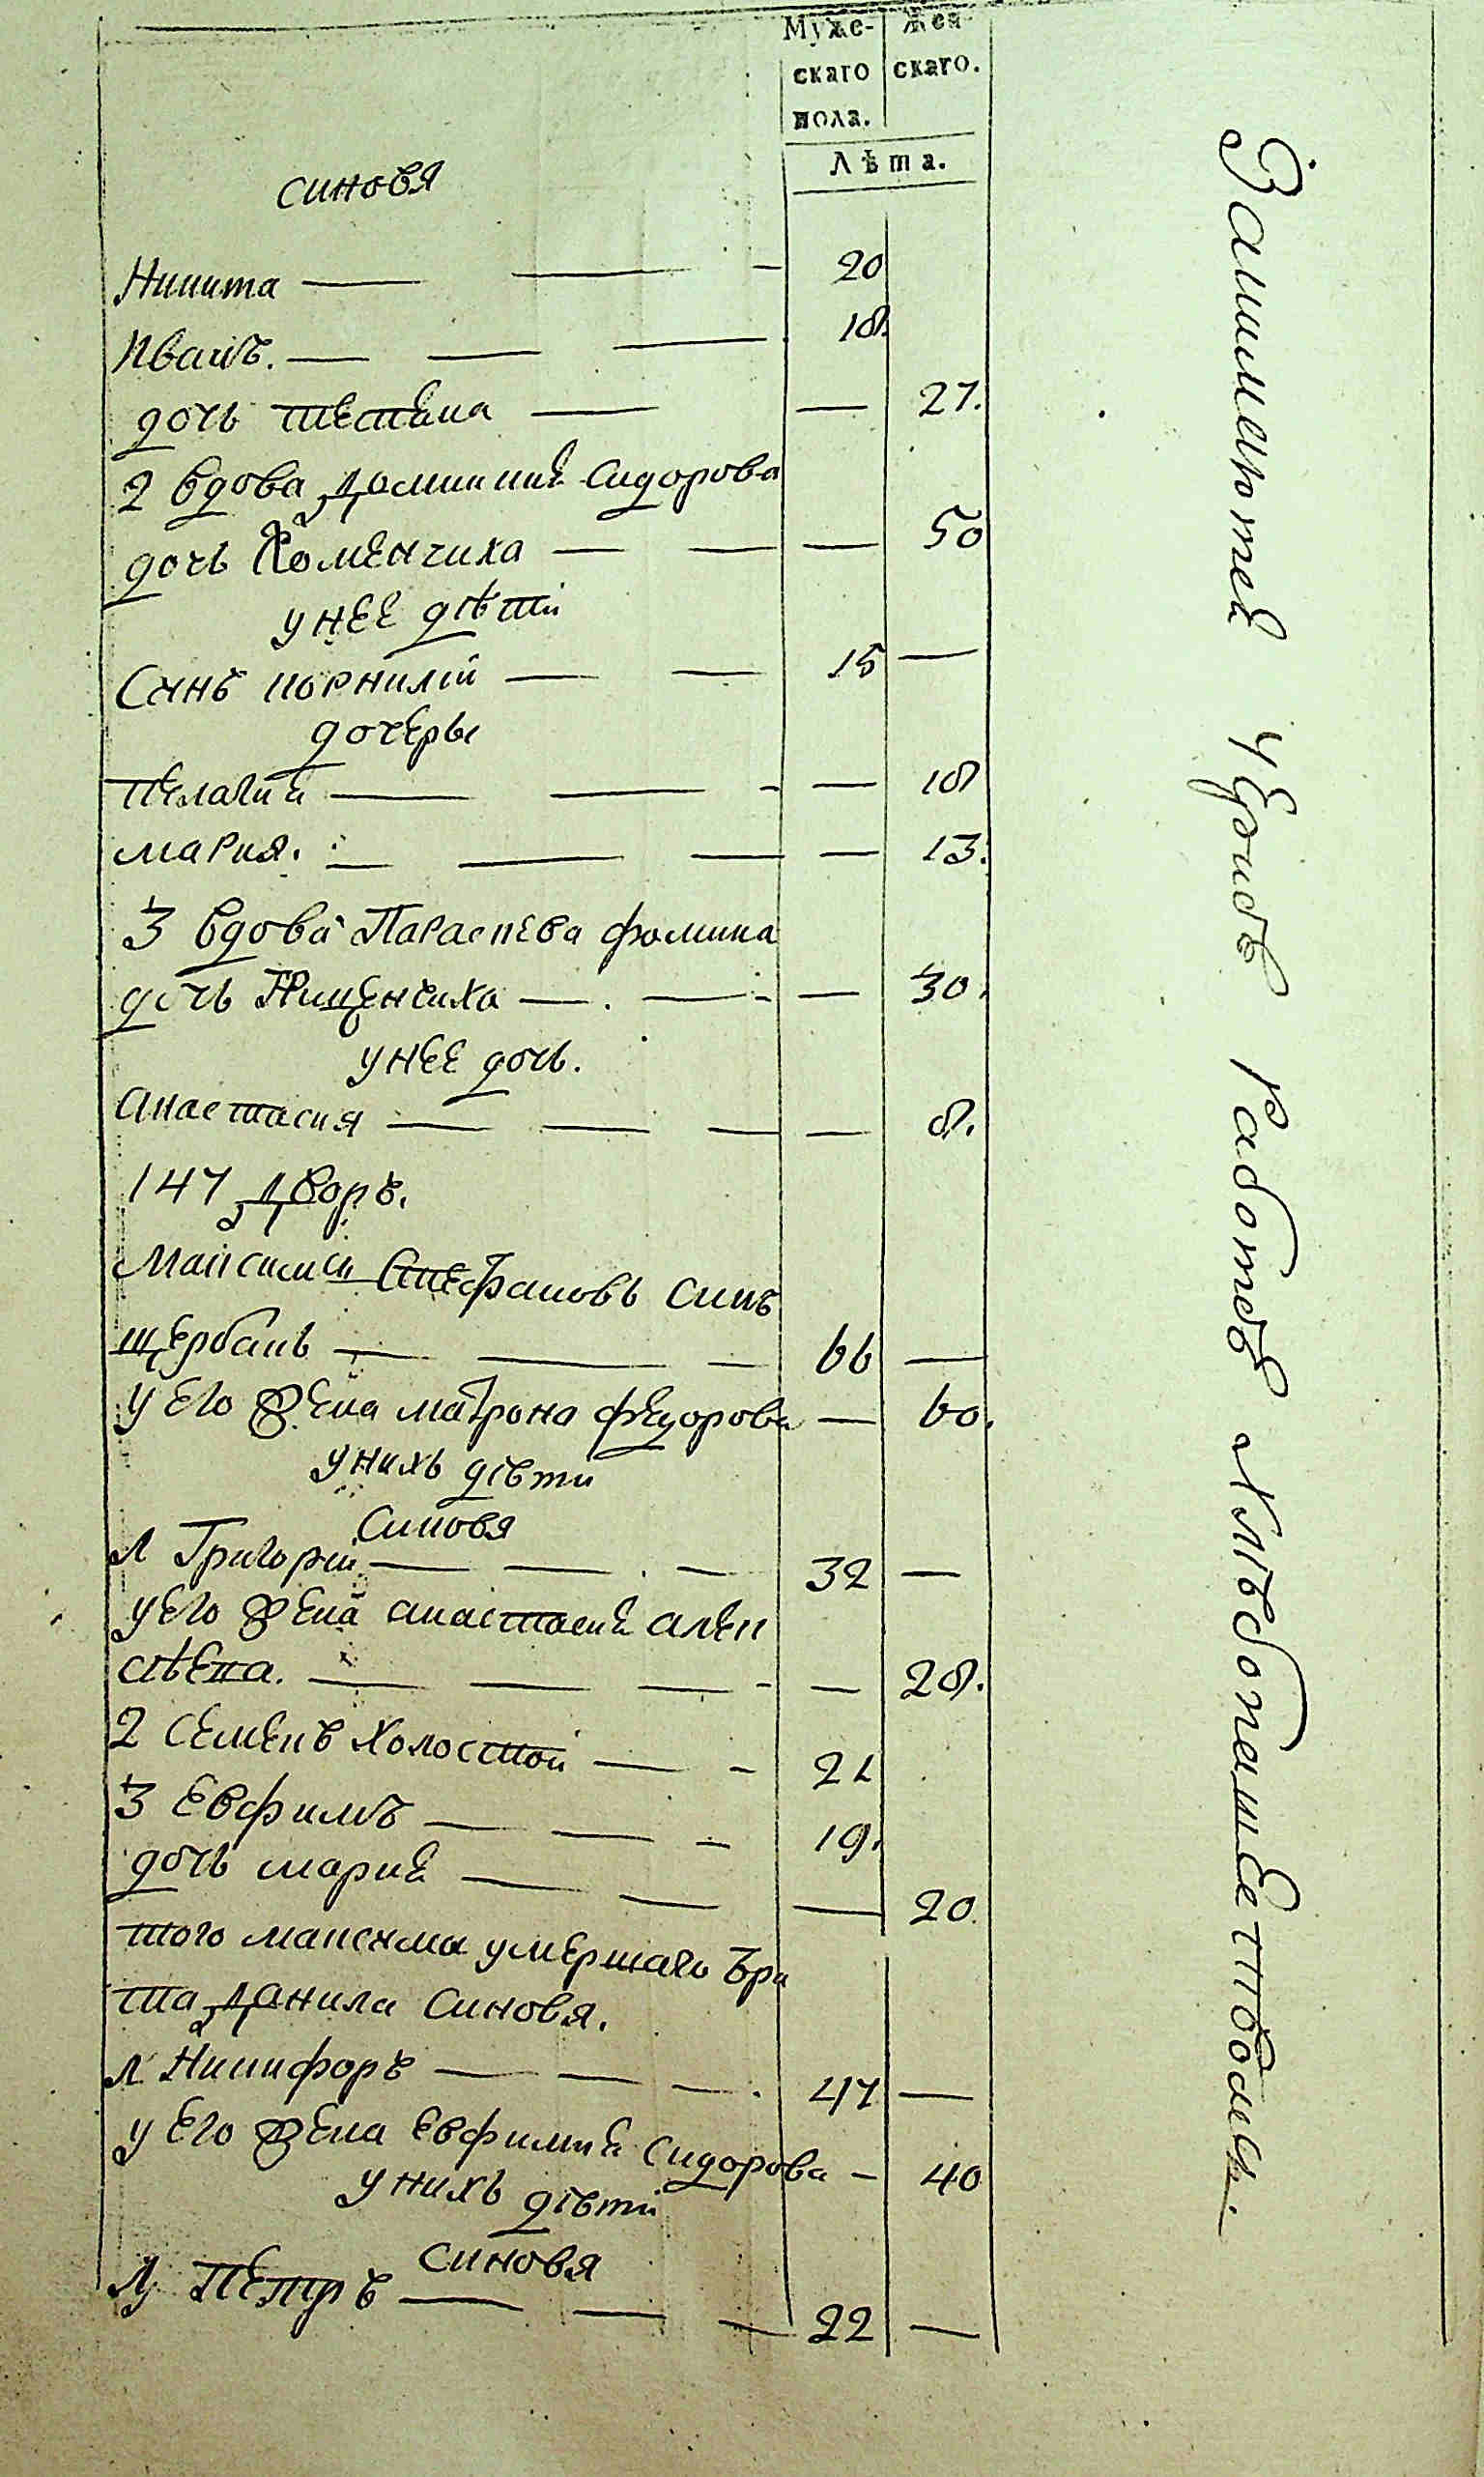 Муже- Жен
скаго скаго.
пола.
Лѣта.
синовя
Никита — — - 20
Иванъ. — — — 18.
дочь Текла — — 27.
2 вдова Домникия Сидорова
дочь Хоменчиха — — — 50
унее дѣти
Синъ корнилій — — 15 —
дочеры
Пелагия — — - — 18
мария. — — — — 13.
3 вдова Параскева фомина
дочь Нищенчиха — — - — 30.
унее дочь.
анастасия — — — — 8.
147 Дворъ.
Максимъ Стефановъ синъ
щербань — — — 66 —
у его жена матрона федорова — 60.
унихъ дѣти
синовя
1 Григорій — — — 32 —
у его жена анастасия алек
сѣева. — — — - — 28.
2 Семенъ холостой — - 21
3 Евфимъ — — - 19.
дочь мария — — — 20.
того максима умершаго бра
та Данила синовя.
1 Никифоръ — — — 47 —
у его жена евфимия Сидорова — 40
унихъ дѣти
синовя
1 Петръ — — — 22 —
Занимаются Чернъ работою Хлѣбопашетвомъ.